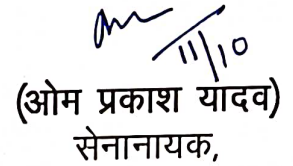 11/10
(ओम प्रकाश यादव)
सेनानायक,